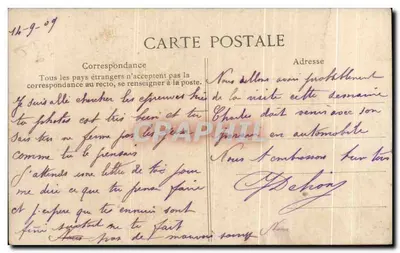 14-9-09
CARTE POSTALE
Correspondance
Tous les pays étrangers n'acceptent pas la
correspondance au recto, se renseigner à la poste.
Je suis allé chercher les épreuves
tu photos est très bien et tu
ne ferme pas les yeux
comme tu le pensais
J'attends une lettre de toi pour
me dire ce que tu penses faire
et j'espère que tes ennuis sont
finis surtout ne te fait
pas de mauvais sang
Adresse
Nous allons avoir probablement
de la visite cette semaine
Charles doit venir avec son
en automobile
Nous t'embrassons
CPARAMA